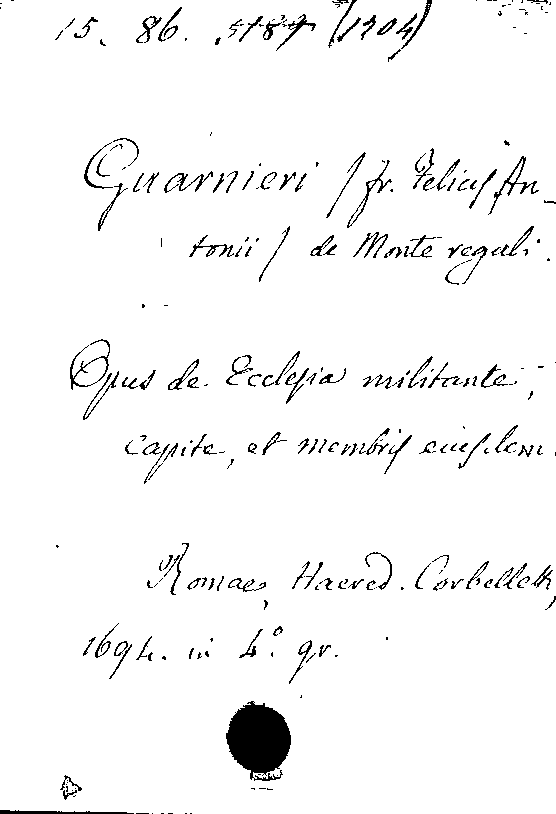 15. 86. 5187 (1704)
Guarnieri / fr. Felicis An-
tonii / de Monte regali.
Opus de Ecclesia militante,
capite, et membris eiusdem.
Romae, Haered. Corbelleth,
1694. in 4° gr.